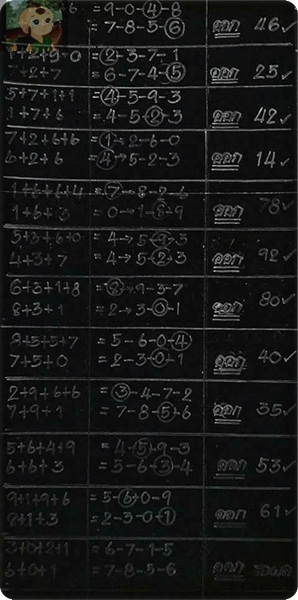 = 9-0-4-8
= 7-8-5-6 ออก 46 ✓
1+2+9+0 = 2-3-7-1
7+2+7 = 6-7-4-5 ออก 25 ✓
5+7+1+1 = 4-5-9-3
1+7+6 = 4-5-2-3 ออก 42 ✓
7+2+6+6 = 1→2-6-0
6+2+6 = 4→5-2-3 ออก 14 ✓
1+6+6+4 = 7→8-2-6
1+6+3 = 0→1-8-9 ออก 78 ✓
5+3+6+0 = 4→5-9-3
4+3+7 = 4→5-2-3 ออก 92 ✓
6+3+1+8 = 8-9-3-7
8+3+1 = 2→3-0-1 ออก 80 ✓
8+5+5+7 = 5-6-0-4
7+5+0 = 2-3-0-1 ออก 40 ✓
2+9+6+6 = 3-4-7-2
7+9+1 = 7-8-5-6 ออก 35 ✓
5+6+4+9 = 4-5-9-3
6+6+3 = 5-6-3-4 ออก 53 ✓
9+1+9+6 = 5-6-0-9
8+1+3 = 2-3-0-1 ออก 61 ✓
3+0+2+1 = 6-7-1-5
6+0+1 = 7-8-5-6 ออก